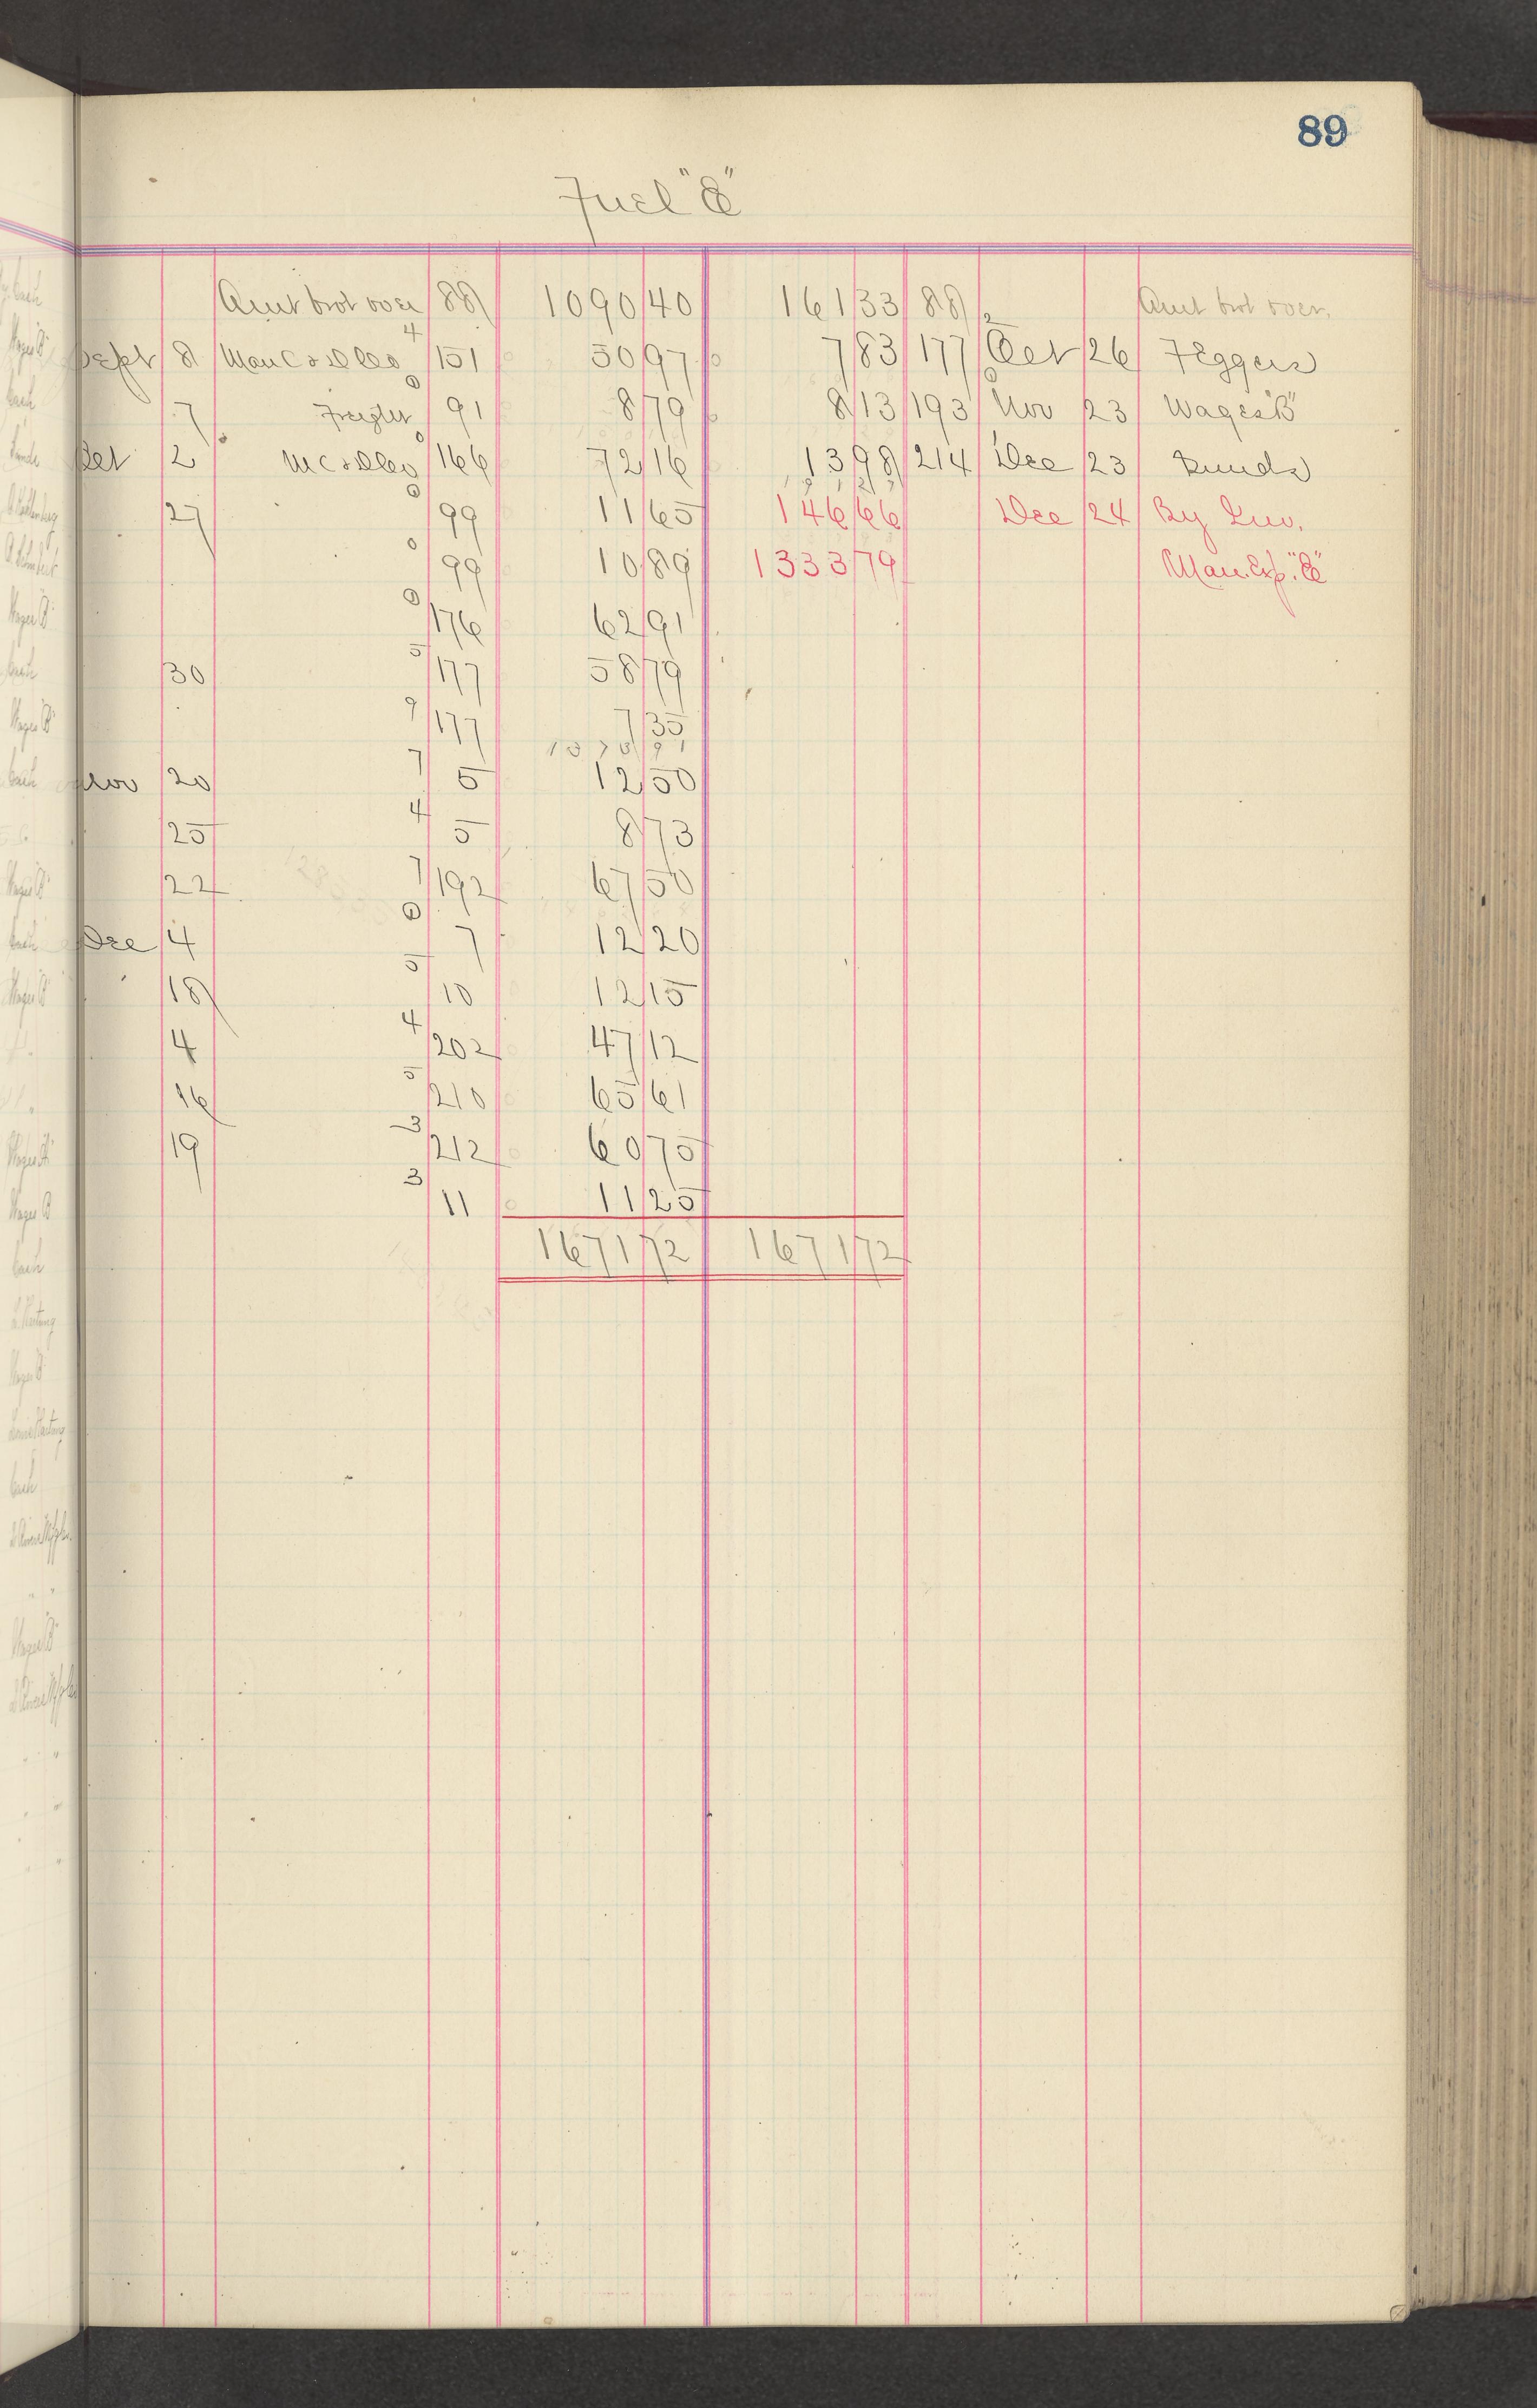 89
Fuel "E"
Amt brot over 88 1090 40 161 33 88 Amt brot over.
Sept 8 151 50 97 7 83 177 Oct 26 F Eggers
7 Freight 91 8 79 8 13 193 Nov 23 Wages "B"
Oct 2 166 72 16 13 98 214 Dec 23 Sunds
27 99 11 65 146 66 Dec 24 By Inv.
99 10 89 1333 79 Man. Exp. "E"
176 62 91
30 177 58 79
177 7 35
Nov 20 5 12 50
25 5 8 73
22 192 67 50
Dec 4 7 12 20
18 10 12 15
4 202 47 12
16 210 65 61
19 212 60 75
11 11 25
1671 72 1671 72